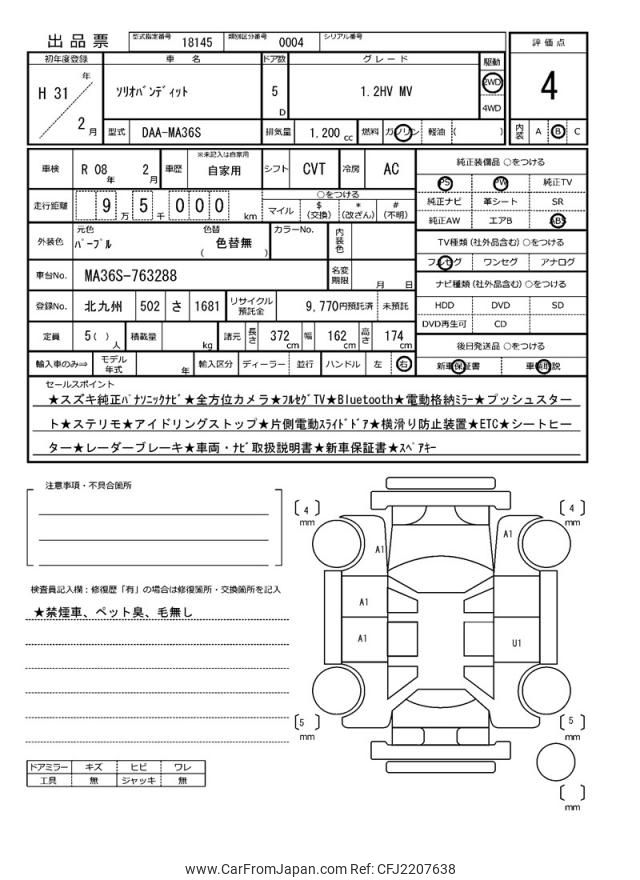 出品票 型式指定番号 18145 類別区分番号 0004 シリアル番号
評価点
初年度登録 車 名 ドア数 グレード 駆動
H 31 年 2 月
ソリオバンディット
5 D
1.2HV MV
2WD
4WD
4
型式 DAA-MA36S 排気量 1,200 cc 燃料 ガソリン 軽油 ( )
内装 A B C
車検 R 08 年 2 月 車歴 ※未記入は自家用 自家用 シフト CVT 冷房 AC
純正装備品 ○をつける
PS PW 純正TV
純正ナビ 革シート SR
純正AW エアB ABS
走行距離 9 万 5 千 0 0 0 km
○をつける
マイル $ (交換) * (改ざん) # (不明)
外装色 元色 パープル 色替 ( 色替無 ) カラーNo. 内装色
TV種類 (社外品含む) ○をつける
フルセグ ワンセグ アナログ
車台No. MA36S-763288 名変期限 月 日
ナビ種類 (社外品含む) ○をつける
HDD DVD SD
DVD再生可 CD
登録No. 北九州 502 さ 1681 リサイクル預託金 9,770円預託済 未預託
定員 5( ) 人 積載量 kg 諸元 長さ 372 cm 幅 162 cm 高さ 174 cm
後日発送品 ○をつける
新車保証書 車輌取説
輸入車のみ⇒ モデル年式 年 輸入区分 ディーラー 並行 ハンドル 左 右
セールスポイント
★スズキ純正パナソニックナビ★全方位カメラ★フルセグTV★Bluetooth★電動格納ミラー★プッシュスター
ト★ステリモ★アイドリングストップ★片側電動スライドドア★横滑り防止装置★ETC★シートヒー
ター★レーダーブレーキ★車両・ナビ取扱説明書★新車保証書★スペアキー
注意事項・不具合箇所
検査員記入欄：修復歴「有」の場合は修復箇所・交換箇所を記入
★禁煙車、ペット臭、毛無し
ドアミラー キズ ヒビ ワレ
工具 無 ジャッキ 無
4 mm
4 mm
A1
A1
A1
A1
U1
5 mm
5 mm
mm
www.CarFromJapan.com Ref: CFJ2207638